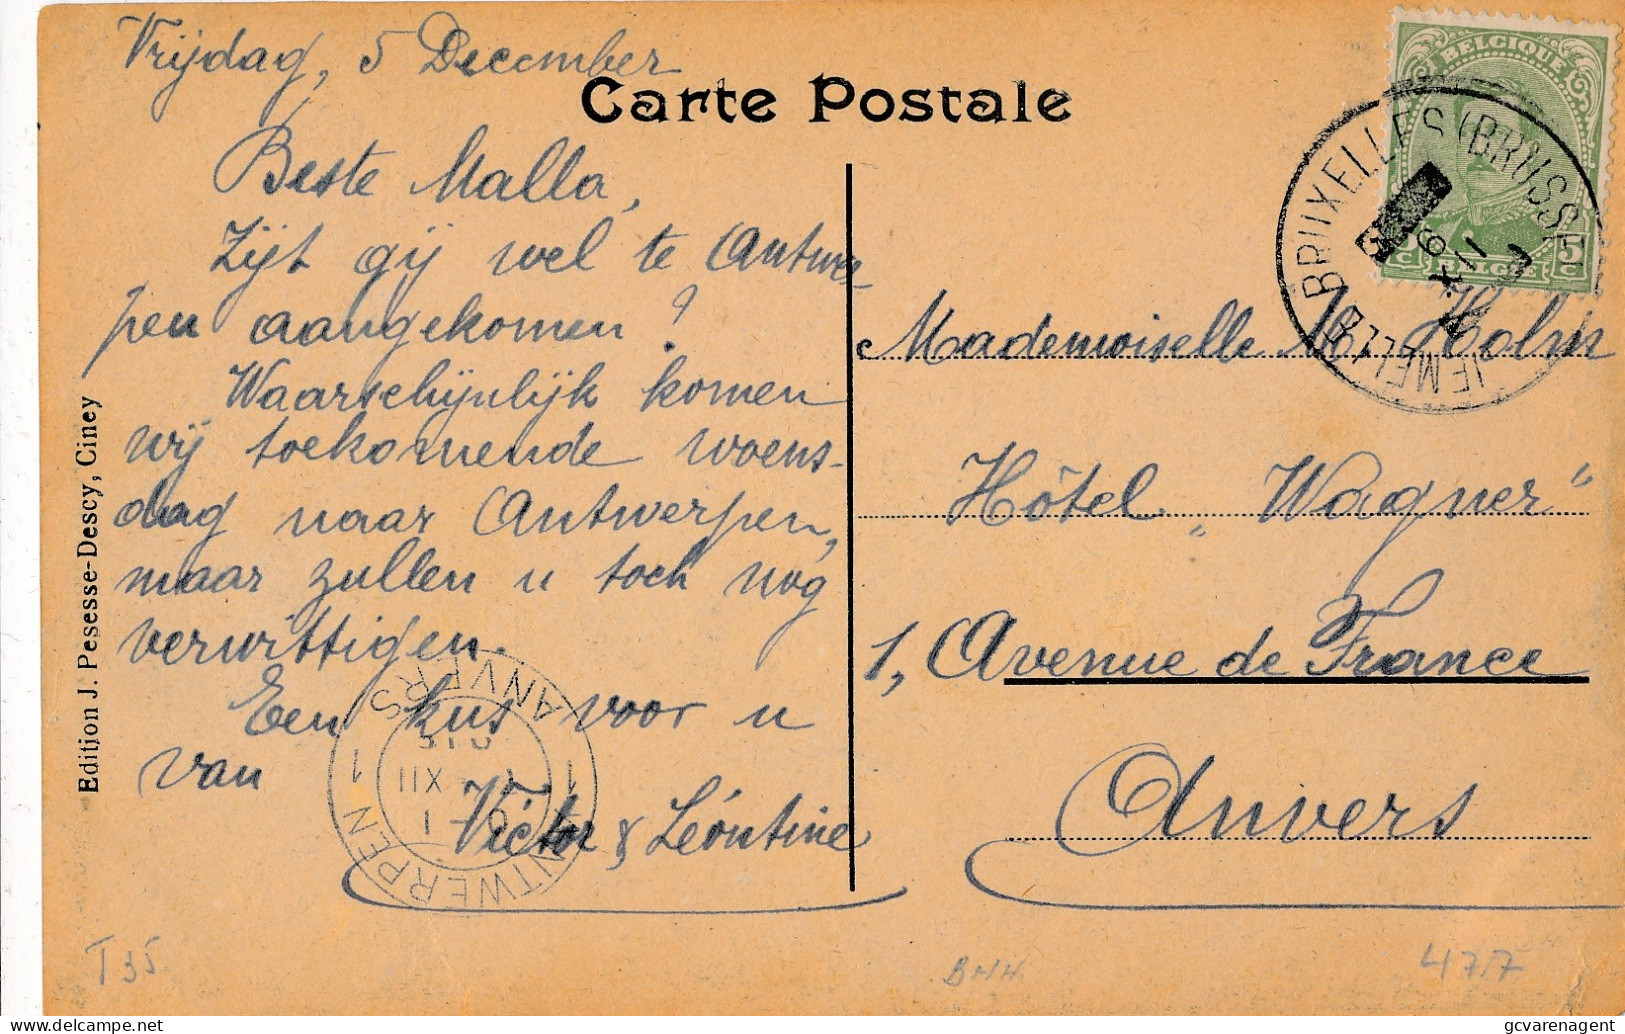 Vrijdag, 5 December
Carte Postale
Beste Malla,
Zijt gij wel te Antwer-
pen aangekomen?
Waarschijnlijk komen
wij toekomende woens-
dag naar Antwerpen,
maar zullen u toch nog
verwittigen.
Een kus voor u
van
Victor & Léontine
Mademoiselle M. Holm
Hôtel „Wagner"
1, Avenue de France
Anvers
Edition J. Pesesse-Descy, Ciney
BELGIQUE
5 c BELGIE 5 c
BRUXELLES (BRUSSEL)
6 XII
JEMELLE
ANVERS
1 XII 1
ANTWERPEN
T35
477
gcvarenagent
delcampe.net